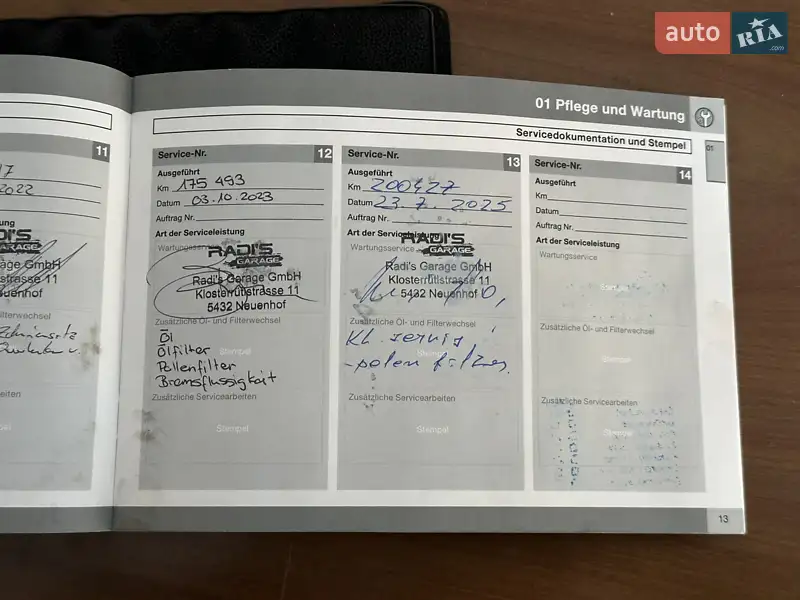 auto RIA.com
01 Pflege und Wartung
Servicedokumentation und Stempel
01
11
17
2022
RADI'S
GARAGE
Garage GmbH
11
Neuenhof
Service-Nr. 12
Ausgeführt
Km 175 493
Datum 03.10.2023
Auftrag Nr.
Art der Serviceleistung
Wartungsservice
RADI'S
GARAGE
Radi's Garage GmbH
Klosterrütistrasse 11
5432 Neuenhof
Zusätzliche Öl- und Filterwechsel
Öl
Ölfilter
Pollenfilter
Bremsflüssigkeit
Stempel
Zusätzliche Servicearbeiten
Stempel
Service-Nr. 13
Ausgeführt
Km 200427
Datum 23.7.2025
Auftrag Nr.
Art der Serviceleistung
Wartungsservice
RADI'S
GARAGE
Radi's Garage GmbH
Klosterrütistrasse 11
5432 Neuenhof
Zusätzliche Öl- und Filterwechsel
Kl. servis
-polen filter
Zusätzliche Servicearbeiten
Stempel
Service-Nr. 14
Ausgeführt
Km
Datum
Auftrag Nr.
Art der Serviceleistung
Wartungsservice
Stempel
Zusätzliche Öl- und Filterwechsel
Stempel
Zusätzliche Servicearbeiten
Stempel
13